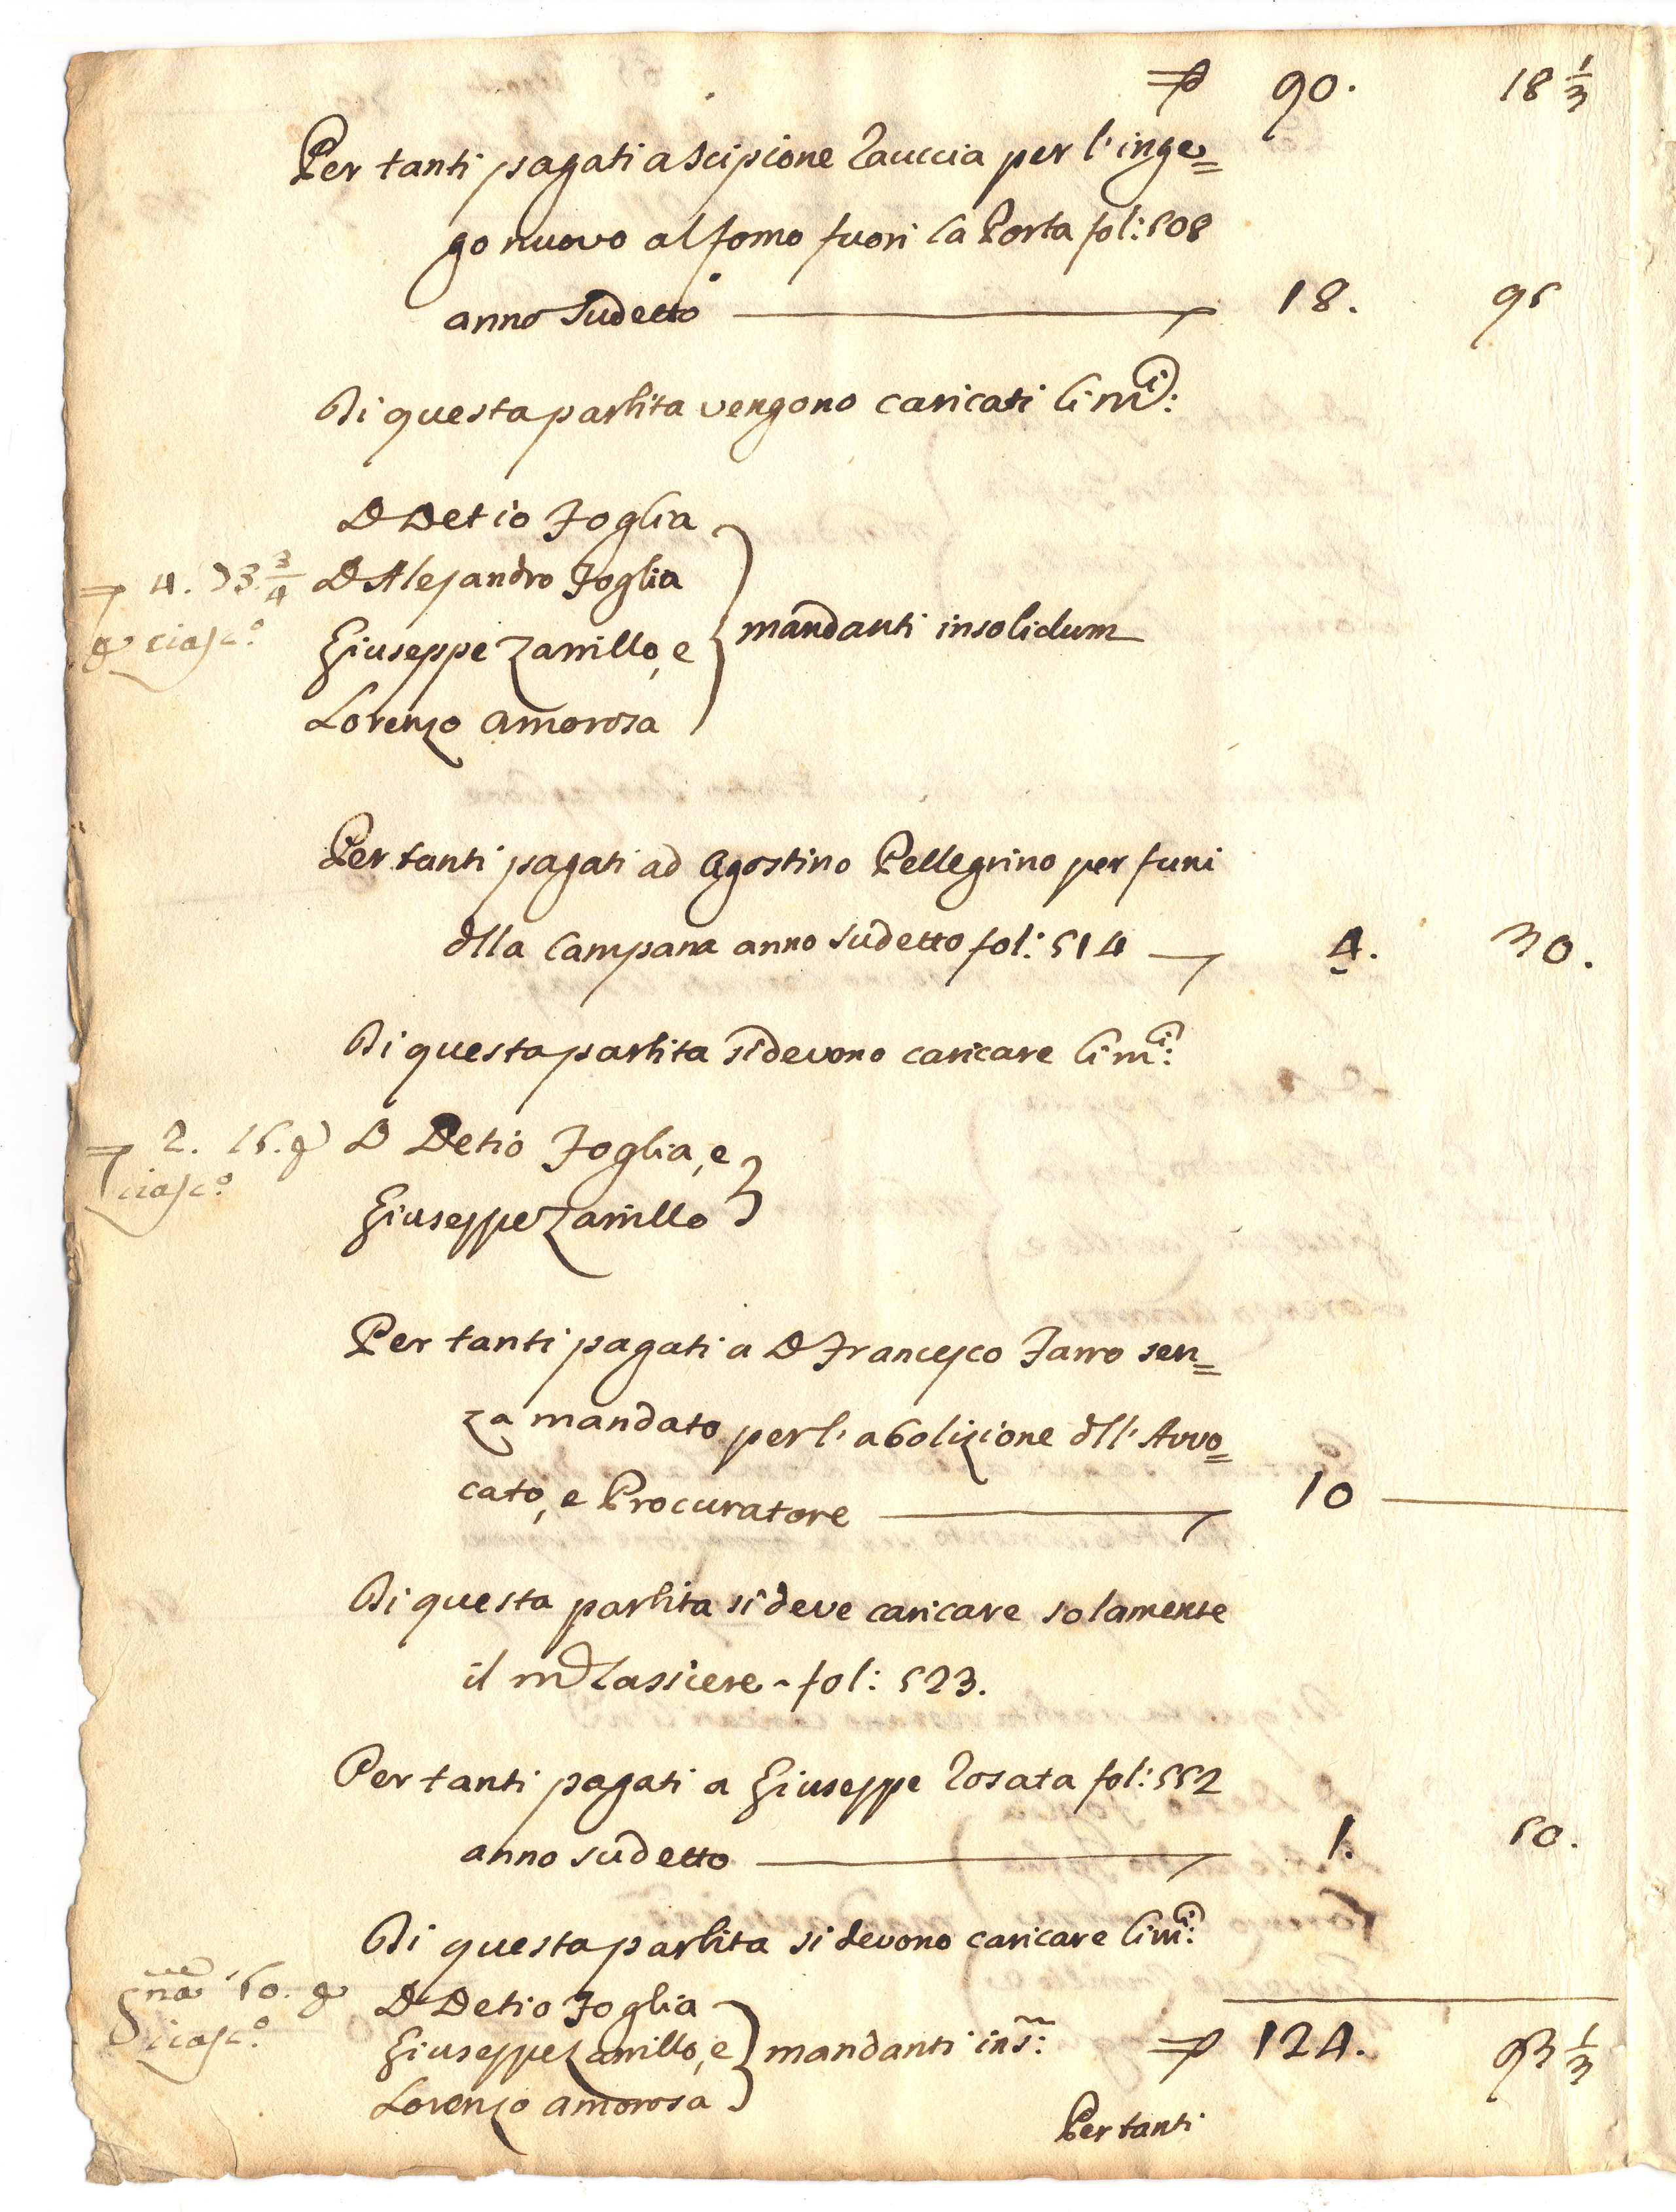 90. 18 1/3
Per tanti pagati a Scipione Cauccia per l'inge=
go nuovo al forno fuori la Porta fol: 508
anno sudetto 18. 95
Di questa partita vengono caricati li m.ci:
D Detio Foglia
4. 73 3/4 D Alesandro Foglia
ciasc.o Giuseppe Zarrillo, e mandanti insolidum
Lorenzo Amorosa
Per tanti pagati ad Agostino Pellegrino per funi
dlla Campana anno sudetto fol: 514 4. 30.
Di questa partita si devono caricare li m.ci:
2. 15. D Detio Foglia, e
ciasc.o Giuseppe Zarrillo
Per tanti pagati a D Francesco Farro sen=
za mandato per l'abolizione dll'Avvo=
cato, e Procuratore 10
Di questa partita si deve caricare solamente
il m.co Cassiere - fol: 523.
Per tanti pagati a Giuseppe Cosata fol: 552
anno sudetto 1. 50.
Di questa partita si devono caricare li m.ci:
50. D Detio Foglia
ciasc.o Giuseppe Zarrillo, e mandanti ins: 124. 93 1/3
Lorenzo Amorosa
Per tanti